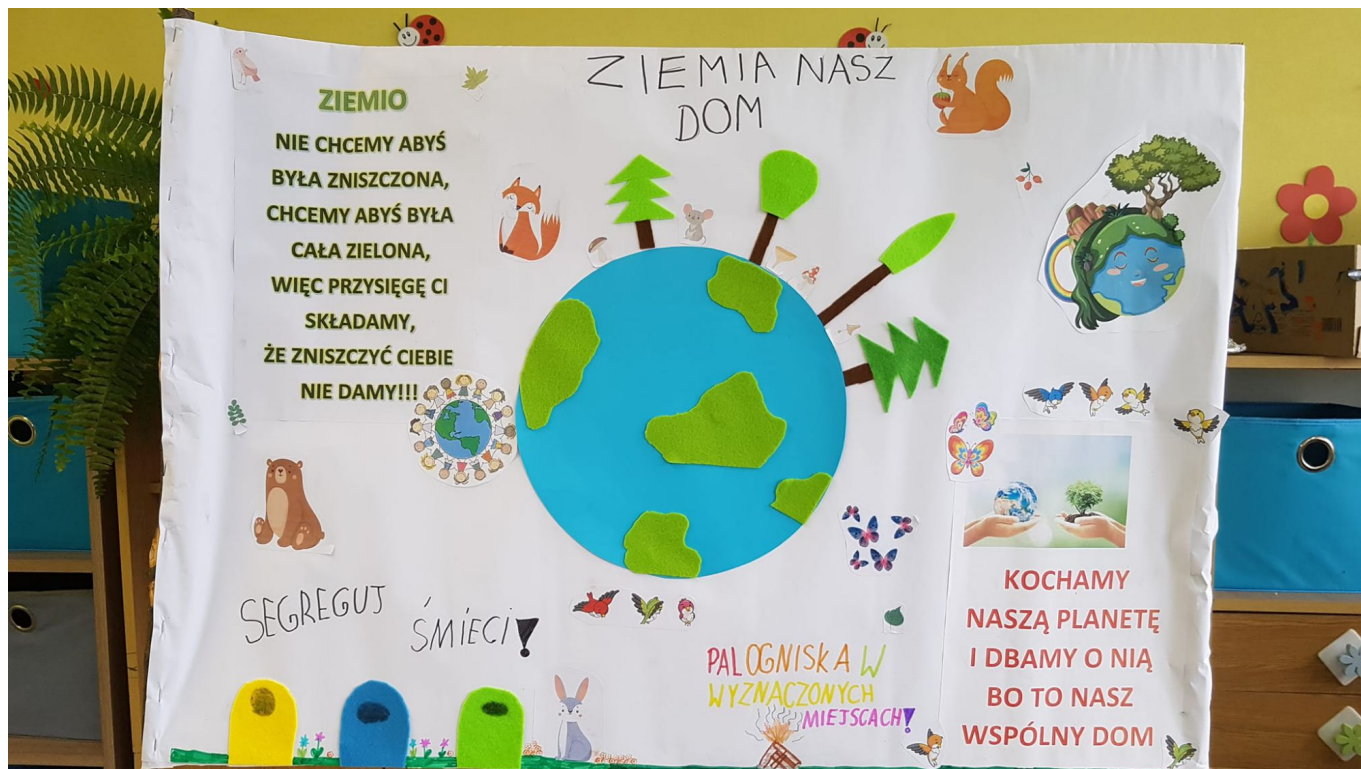 ZIEMIA NASZ
DOM
ZIEMIO
NIE CHCEMY ABYŚ
BYŁA ZNISZCZONA,
CHCEMY ABYŚ BYŁA
CAŁA ZIELONA,
WIĘC PRZYSIĘGĘ CI
SKŁADAMY,
ŻE ZNISZCZYĆ CIEBIE
NIE DAMY!!!
SEGREGUJ
ŚMIECI!
PAL OGNISKA W
WYZNACZONYCH
MIEJSCACH!
KOCHAMY
NASZĄ PLANETĘ
I DBAMY O NIĄ
BO TO NASZ
WSPÓLNY DOM